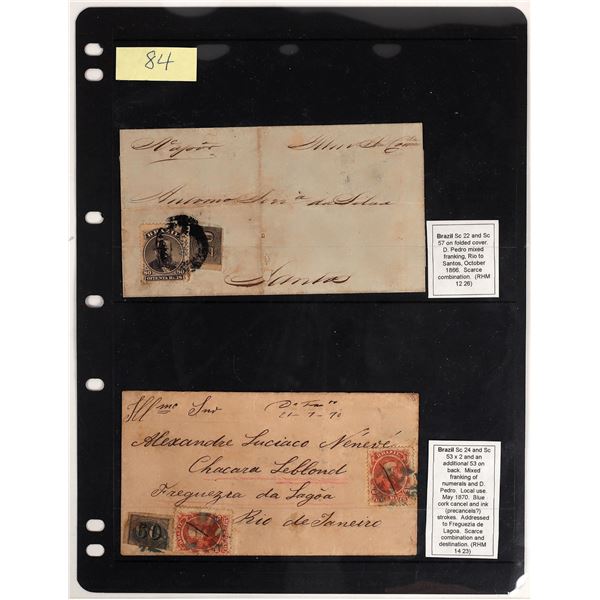 84
Antonio
da Silva
BRAZIL
80 80
OITENTA RÉIS
Santos
Brazil Sc 22 and Sc
57 on folded cover.
D. Pedro mixed
franking, Rio to
Santos, October
1866. Scarce
combination. (RHM
12 26)
Illmo Snr
21-7-70
Alexandre Luciaco
Chacara Leblond
Freguezia da Lagôa
Rio de Janeiro
60
Brazil Sc 24 and Sc
53 x 2 and an
additional 53 on
back. Mixed
franking of
numerals and D.
Pedro. Local use.
May 1870. Blue
cork cancel and ink
(precancels?)
strokes. Addressed
to Freguezia de
Lagoa. Scarce
combination and
destination. (RHM
14 23)